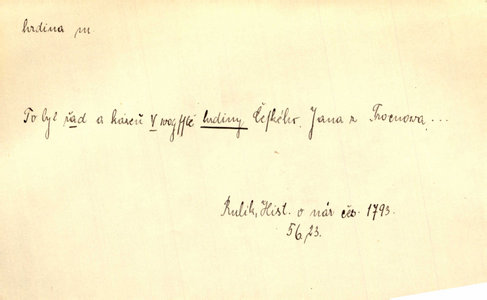 hrdina m
To byl řád a kázeň v wogſſtě hrdiny Čeſkého, Jana z Trocnowa, ...
Rulík, Hist. o nár čes. 1793.
56, 23.